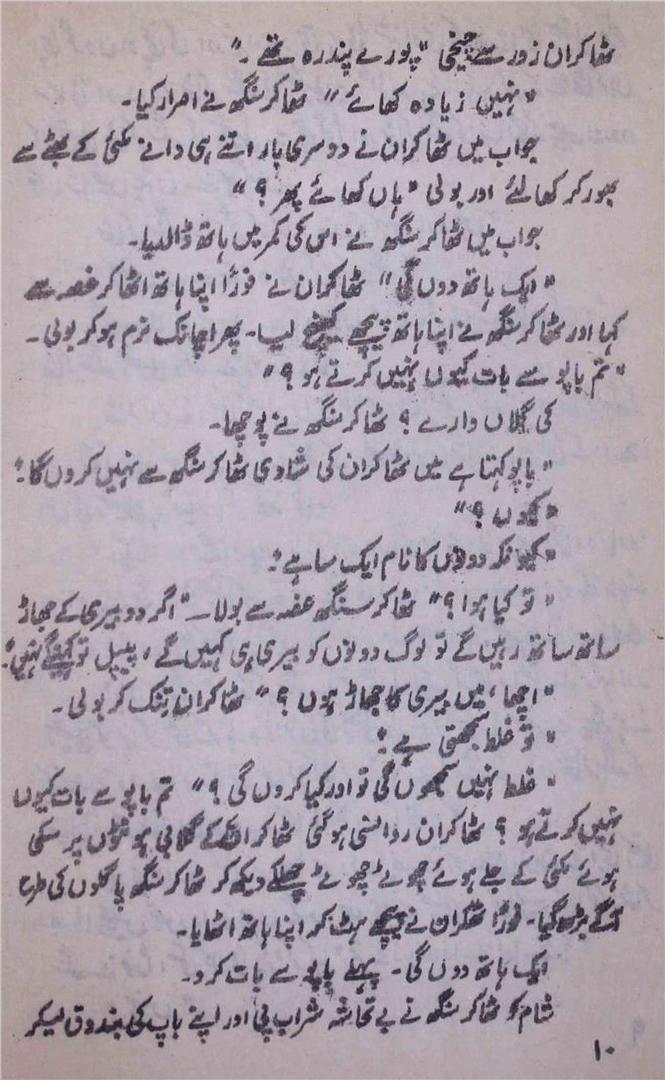 ٹھاکران زور سے چیخی "پورے پندرہ تھے۔"
"نہیں زیادہ کھائے" ٹھاکر سنگھ نے اصرار کیا۔
جواب میں ٹھاکران نے دوسری بار اتنے ہی دانے مکئی کے بھٹے سے
بھور کر کھا لئے اور بولی "ہاں کھائے پھر؟"
جواب میں ٹھاکر سنگھ نے اس کی کمر میں ہاتھ ڈالدیا۔
"ایک ہاتھ دوں گی" ٹھاکران نے فوراً اپنا ہاتھ اٹھا کر غصہ سے
کہا اور ٹھاکر سنگھ نے اپنا ہاتھ پیچھے کھینچ لیا۔ پھر اچانک نرم ہو کر بولی۔
"تم باپو سے بات کیوں نہیں کرتے ہو؟"
کی گلاں وارے؟ ٹھاکر سنگھ نے پوچھا۔
"باپو کہتا ہے میں ٹھاکران کی شادی ٹھاکر سنگھ سے نہیں کروں گا"
"کیوں؟"
"کیونکہ دونوں کا نام ایک سا ہے"
"تو کیا ہوا؟" ٹھاکر سنگھ غصہ سے بولا۔ "اگر دو بیری کے جھاڑ
ساتھ ساتھ رہیں گے تو لوگ دونوں کو بیری ہی کہیں گے، پیپل تو کہینگے نہیں"
"اچھا، میں بیری کا جھاڑ ہوں؟" ٹھاکران تنک کر بولی۔
"تو غلط سمجھتی ہے"
"غلط نہیں سمجھوں گی تو اور کیا کروں گی؟" تم باپو سے بات کیوں
نہیں کرتے ہو؟ ٹھاکران روانسی ہو گئی ٹھاکران کے گلابی ہونٹوں پر
ہوئے مکئی کے جلے ہوئے چھوٹے چھوٹے چھلکے دیکھ کر ٹھاکر سنگھ پاگلوں کی طرح
آگے بڑھ گیا۔ فوراً ٹھکران نے پیچھے ہٹ کر اپنا ہاتھ اٹھایا۔
ایک ہاتھ دوں گی۔ پہلے باپو سے بات کرو۔
شام کو ٹھاکر سنگھ نے بے تحاشہ شراب پی اور اپنے باپ کی بندوق لیکر
۱۰